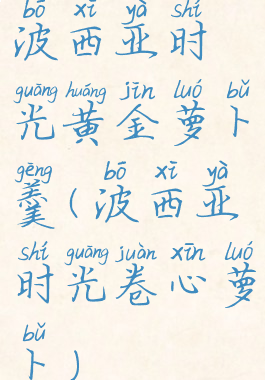 bō xī yà shí
波西亚时
guāng huáng jīn luó bǔ
光黄金萝卜
gēng bō xī yà
羹(波西亚
shí guāng juàn xīn luó
时光卷心萝
bǔ
卜)